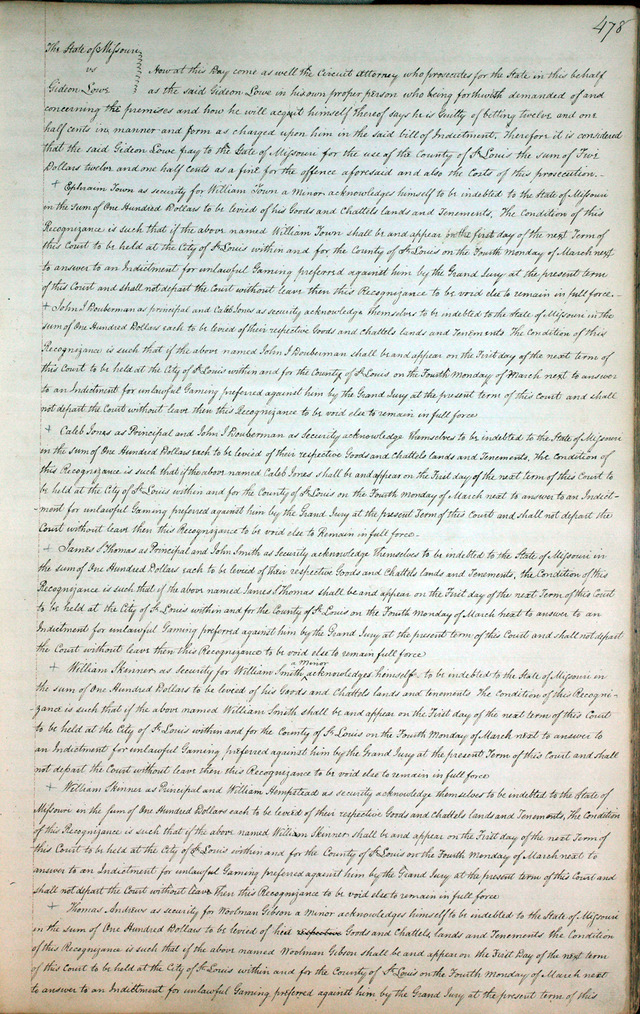 478
The State of Missouri
vs Now at this Day come as well the Circuit Attorney who prosecutes for the State in this behalf
Gideon Lowe as the said Gideon Lowe in his own proper person who being forthwith demanded of and
concerning the premises and how he will acquit himself thereof says he is Guilty of betting twelve and one
half cents in manner and form as charged upon him in the said bill of Indictment, Therefore it is considered
that the said Gideon Lowe pay to the State of Missouri for the use of the County of St Louis the sum of
Dollars twelve and one half cents as a fine for the offence aforesaid and also the Costs of this prosecution. -
+ Ephraim Town as security for William Town a Minor acknowledges himself to be indebted to the State of Missouri
in the Sum of One Hundred Dollars to be levied of his Goods and Chattels lands and Tenements. The Condition of this
Recognizance is such that if the above named William Town shall be and appear on the first day of the next Term of
this Court to be held at the City of St Louis within and for the County of St Louis on the Fourth Monday of March next
to answer to an Indictment for unlawful Gaming preferred against him by the Grand Jury at the present term
of this Court and shall not depart the Court without leave then this Recognizance to be void else to remain in full force. -
+ John J Douberman as principal and Caleb Jones as security acknowledge themselves to be indebted to the State of Missouri in the
sum of One Hundred Dollars each to be levied of their respective Goods and chattels lands and Tenements. The Condition of this
Recognizance is such that if the above named John J Douberman shall be and appear on the First day of the next term of
this Court to be held at the City of St Louis within and for the County of St Louis on the Fourth Monday of March next to answer
to an Indictment for unlawful Gaming preferred against him by the Grand Jury at the present term of this Court and shall
not depart the Court without leave then this Recognizance to be void else to remain in full force
+ Caleb Jones as Principal and John J Douberman as Security acknowledge themselves to be indebted to the State of Missouri
in the sum of One Hundred Dollars each to be levied of their respective Goods and chattels lands and Tenements, The Condition of
this Recognizance is such that if the above named Caleb Jones shall be and appear on the First day of the next term of this Court to
be held at the City of St Louis within and for the County of St Louis on the Fourth Monday of March next to answer to an Indict-
ment for unlawful Gaming preferred against him by the Grand Jury at the present Term of this Court and shall not depart the
Court without leave then this Recognizance to be void else to Remain in full force -
+ James S Thomas as Principal and John Smith as Security acknowledge themselves to be indebted to the State of Missouri in
the sum of One Hundred Dollars each to be levied of their respective Goods and Chattels lands and Tenements, the Condition of this
Recognizance is such that if the above named James S Thomas shall be and appear on the First day of the next Term of this Court
to be held at the City of St Louis within and for the County of St Louis on the Fourth Monday of March next to answer to an
Indictment for unlawful Gaming preferred against him by the Grand Jury at the present term of this Court and shall not depart
the Court without leave then this Recognizance to be void else to remain full force
a minor
+ William Skinner as Security for William Smith acknowledges himself to be indebted to the State of Missouri in
the sum of One Hundred Dollars to be levied of his Goods and Chattels lands and tenements The Condition of this Recogni-
zance is such that if the above named William Smith shall be and appear on the First day of the next term of this Court
to be held at the City of St Louis within and for the County of St Louis on the Fourth Monday of March next to answer to
an Indictment for unlawful Gaming preferred against him by the Grand Jury at the present Term of this Court and shall
not depart the Court without leave then this Recognizance to be void else to remain in full force
+ William Skinner as Principal and William Hempstead as security acknowledge themselves to be indebted to the State of
Missouri in the sum of One Hundred Dollars each to be levied of their respective Goods and chattels lands and Tenements, The Condition
of this Recognizance is such that if the above named William Skinner shall be and appear on the First day of the next Term of
this Court to be held at the City of St Louis within and for the County of St Louis on the Fourth Monday of March next to
answer to an Indictment for unlawful Gaming preferred against him by the Grand Jury at the present term of this Court and
shall not depart the Court without leave then this Recognizance to be void else to remain in full force
+ Thomas Andrews as security for Woolman Gibson a Minor acknowledges himself to be indebted to the State of Missouri
in the sum of One Hundred Dollars to be levied of his respective Goods and Chattels, lands and Tenements the Condition
of this Recognizance is such that if the above named Woolman Gibson shall be and appear on the First Day of the next term
of this Court to be held at the City of St Louis within and for the County of St Louis on the Fourth Monday of March next
to answer to an Indictment for unlawful Gaming preferred against him by the Grand Jury at the present term of this